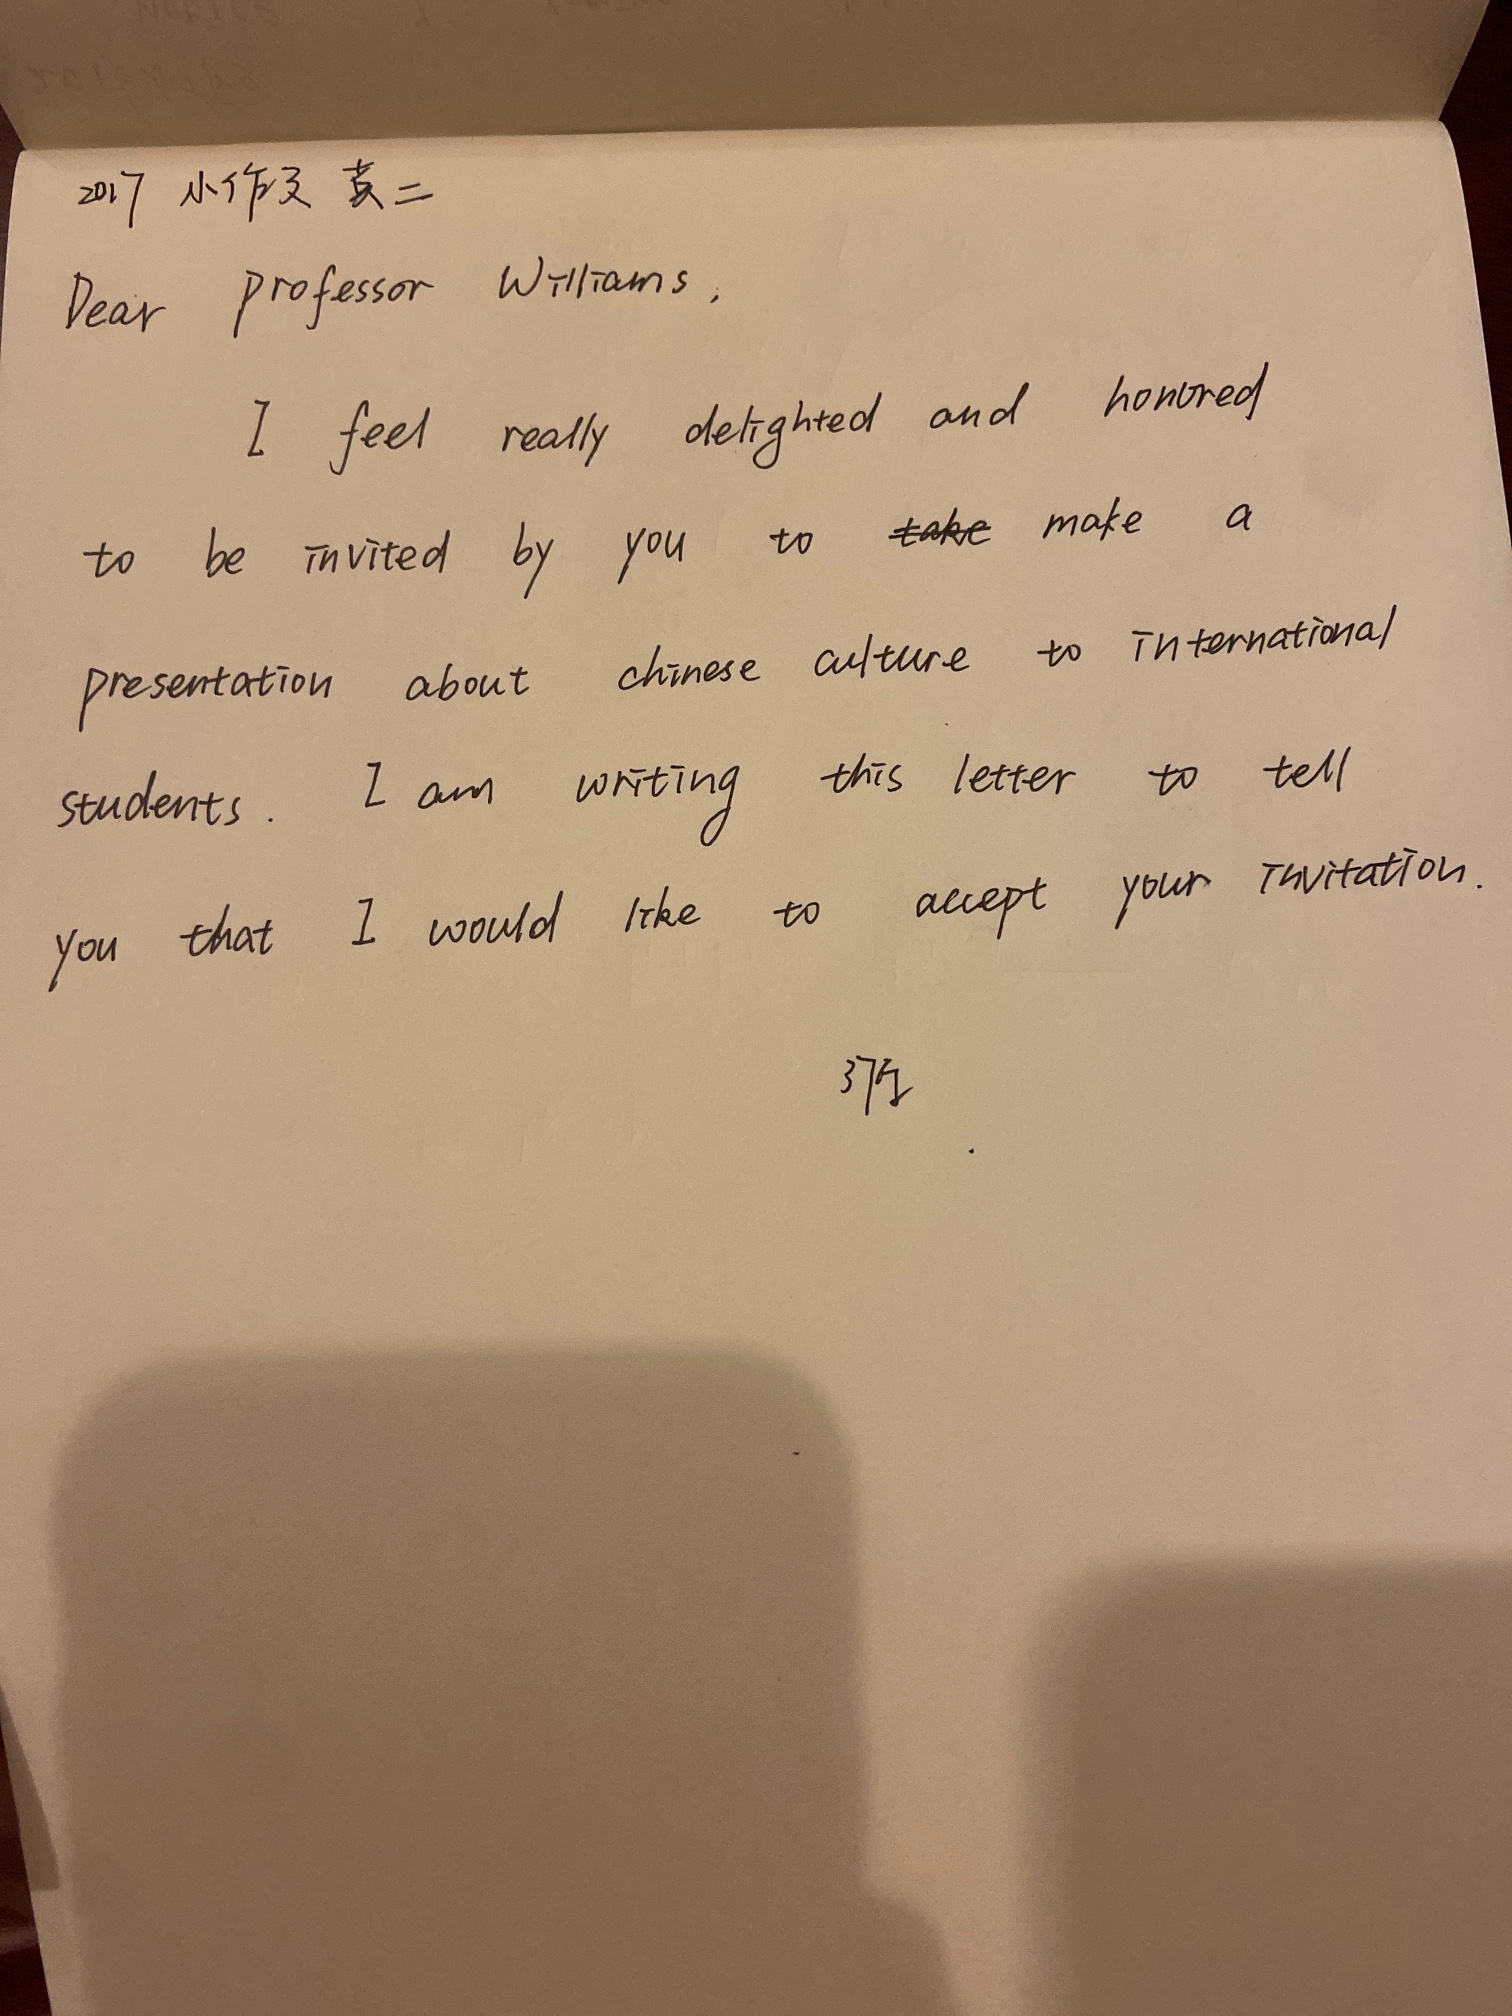 2017 小作文 英二
Dear professor Williams,
I feel really delighted and honored
to be invited by you to take make a
presentation about chinese culture to international
students. I am writing this letter to tell
you that I would like to accept your invitation.